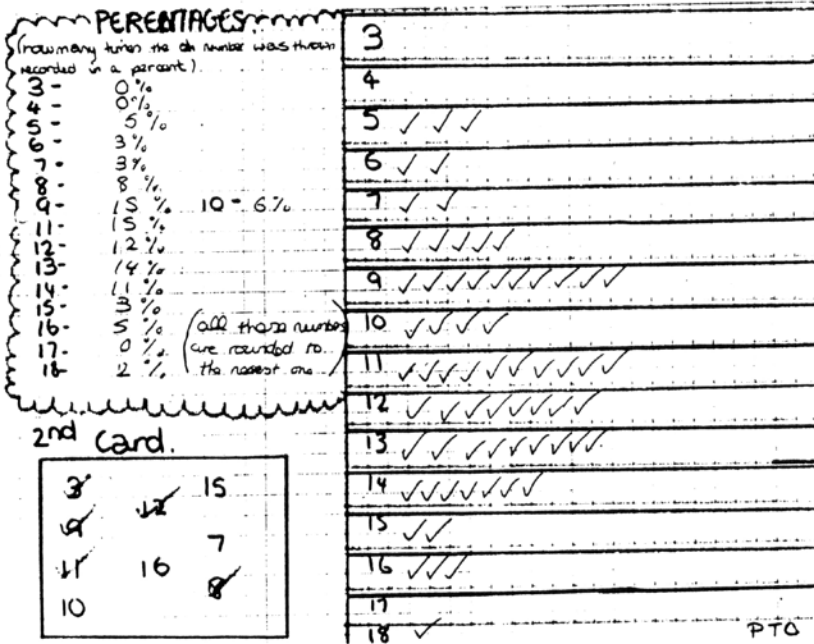 PERENTAGES
(how many times the die number was thrown
recorded in a percent)
3 - 0%
4 - 0%
5 - 5%
6 - 3%
7 - 3%
8 - 8%
9 - 15% 10 - 6%
11 - 15%
12 - 12%
13 - 14%
14 - 11%
15 - 3%
16 - 5%
17 - 0%
18 - 2%
(all these numbers
are rounded to
the nearest one
2nd Card.
3 15
9 12
7
11 16
8
10
3
4
5 ✓✓✓
6 ✓✓
7 ✓✓
8 ✓✓✓✓✓
9 ✓✓✓✓✓✓✓✓✓✓
10 ✓✓✓✓
11 ✓✓✓✓✓✓✓✓✓✓
12 ✓✓✓✓✓✓✓✓
13 ✓✓✓✓✓✓✓✓✓
14 ✓✓✓✓✓✓✓
15 ✓✓
16 ✓✓✓
17
18 ✓
PTO